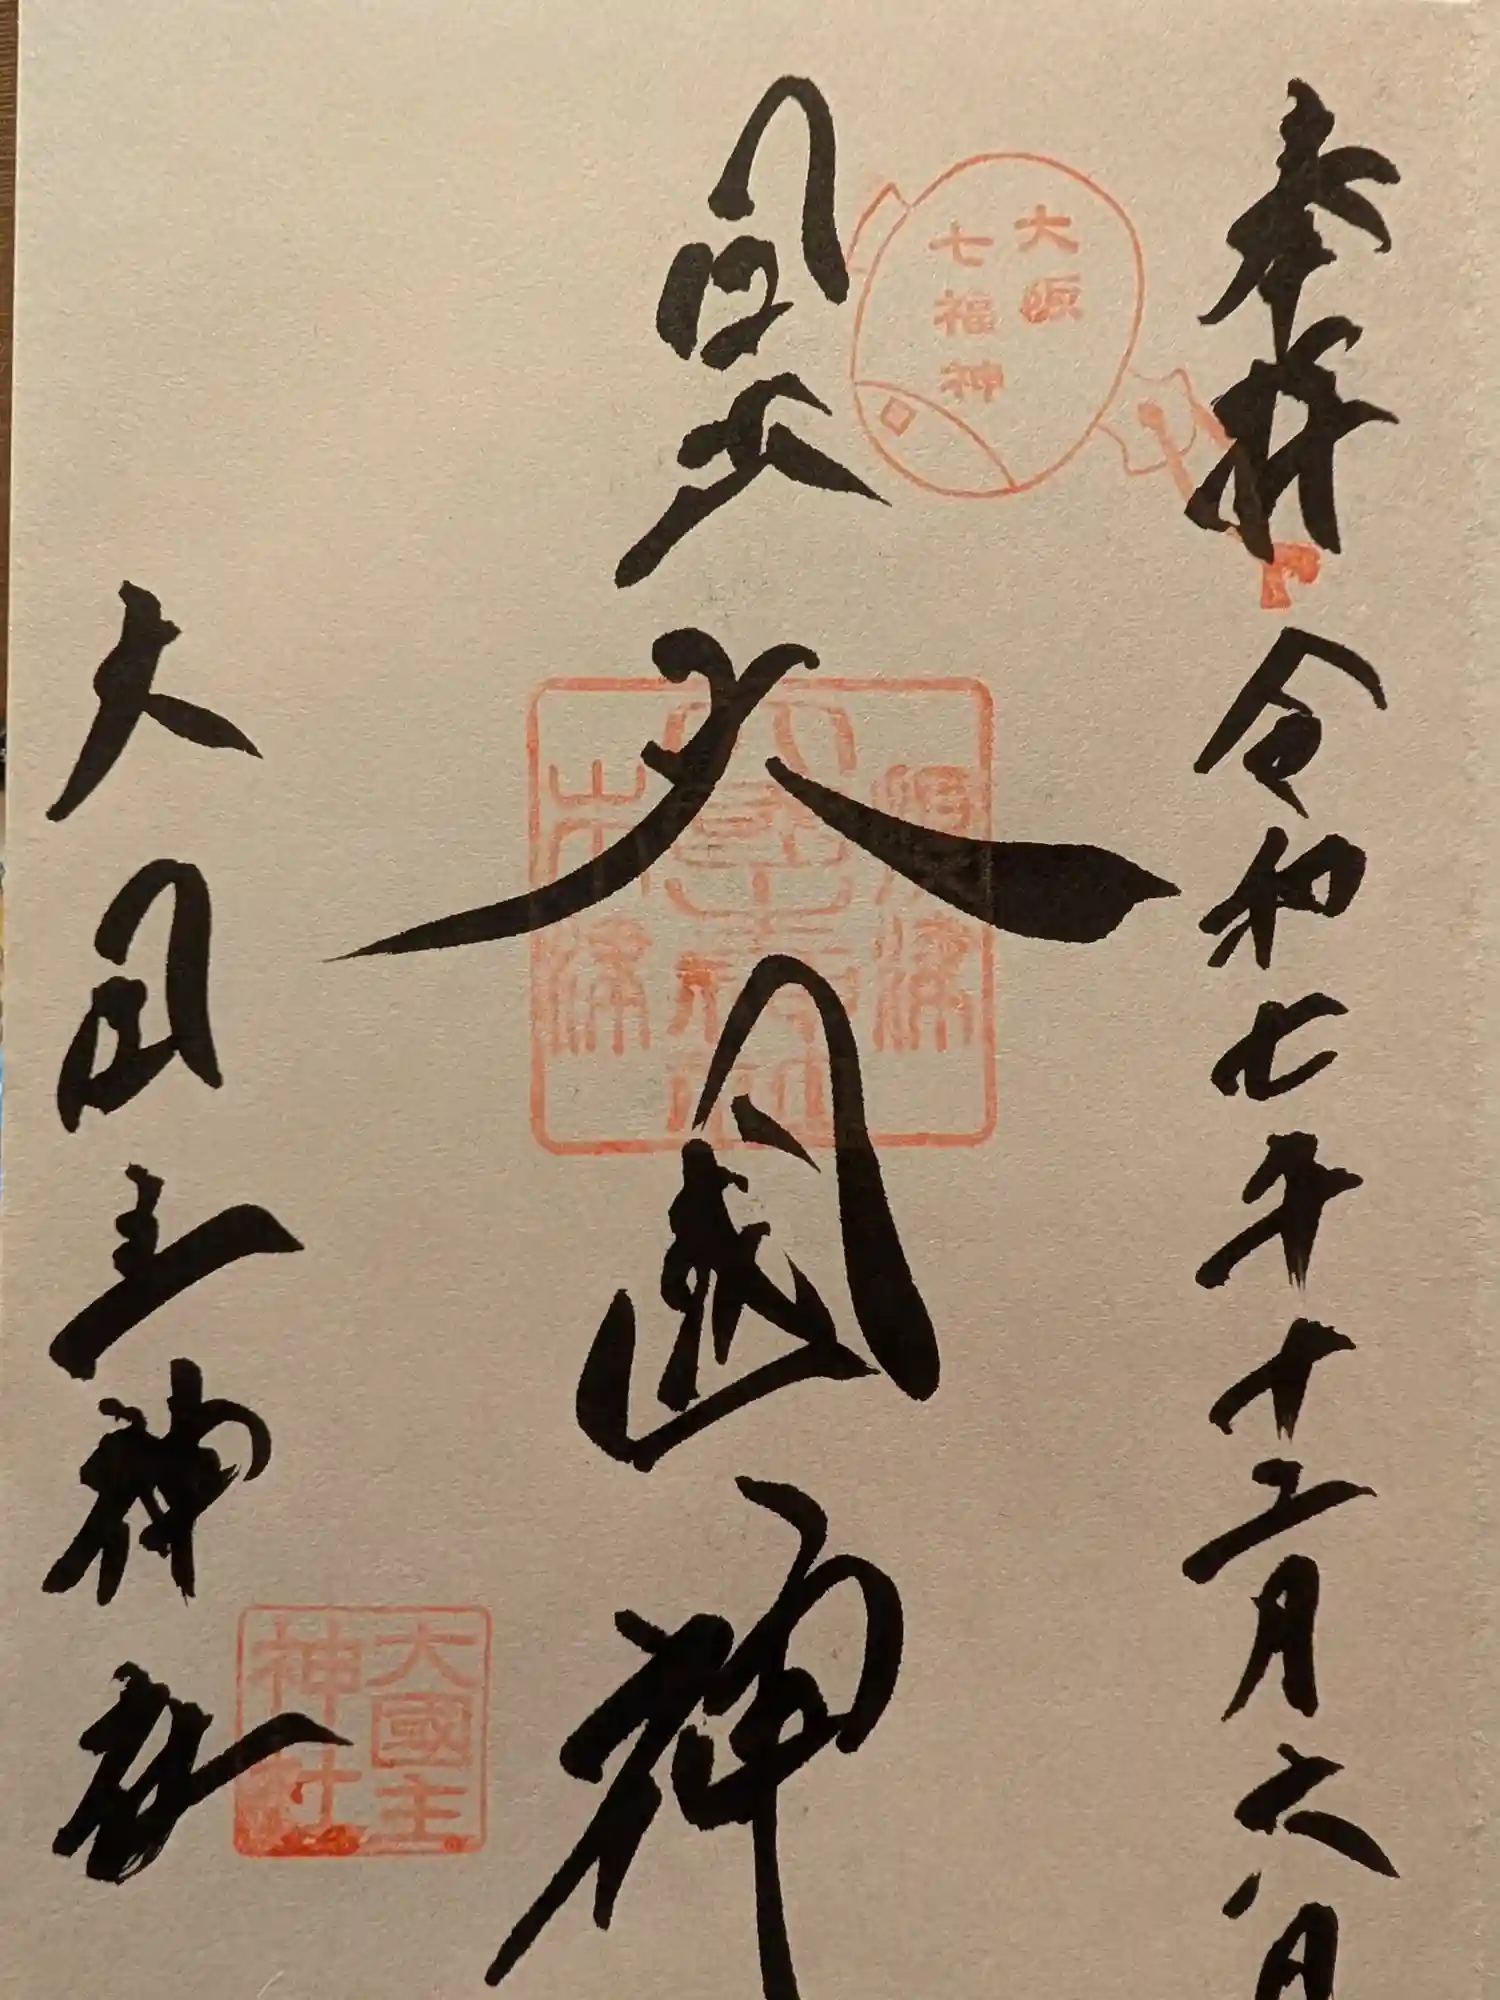 奉拝 令和七年十二月六日
大阪
七福神
大國神
大国主神社
大國主
神社